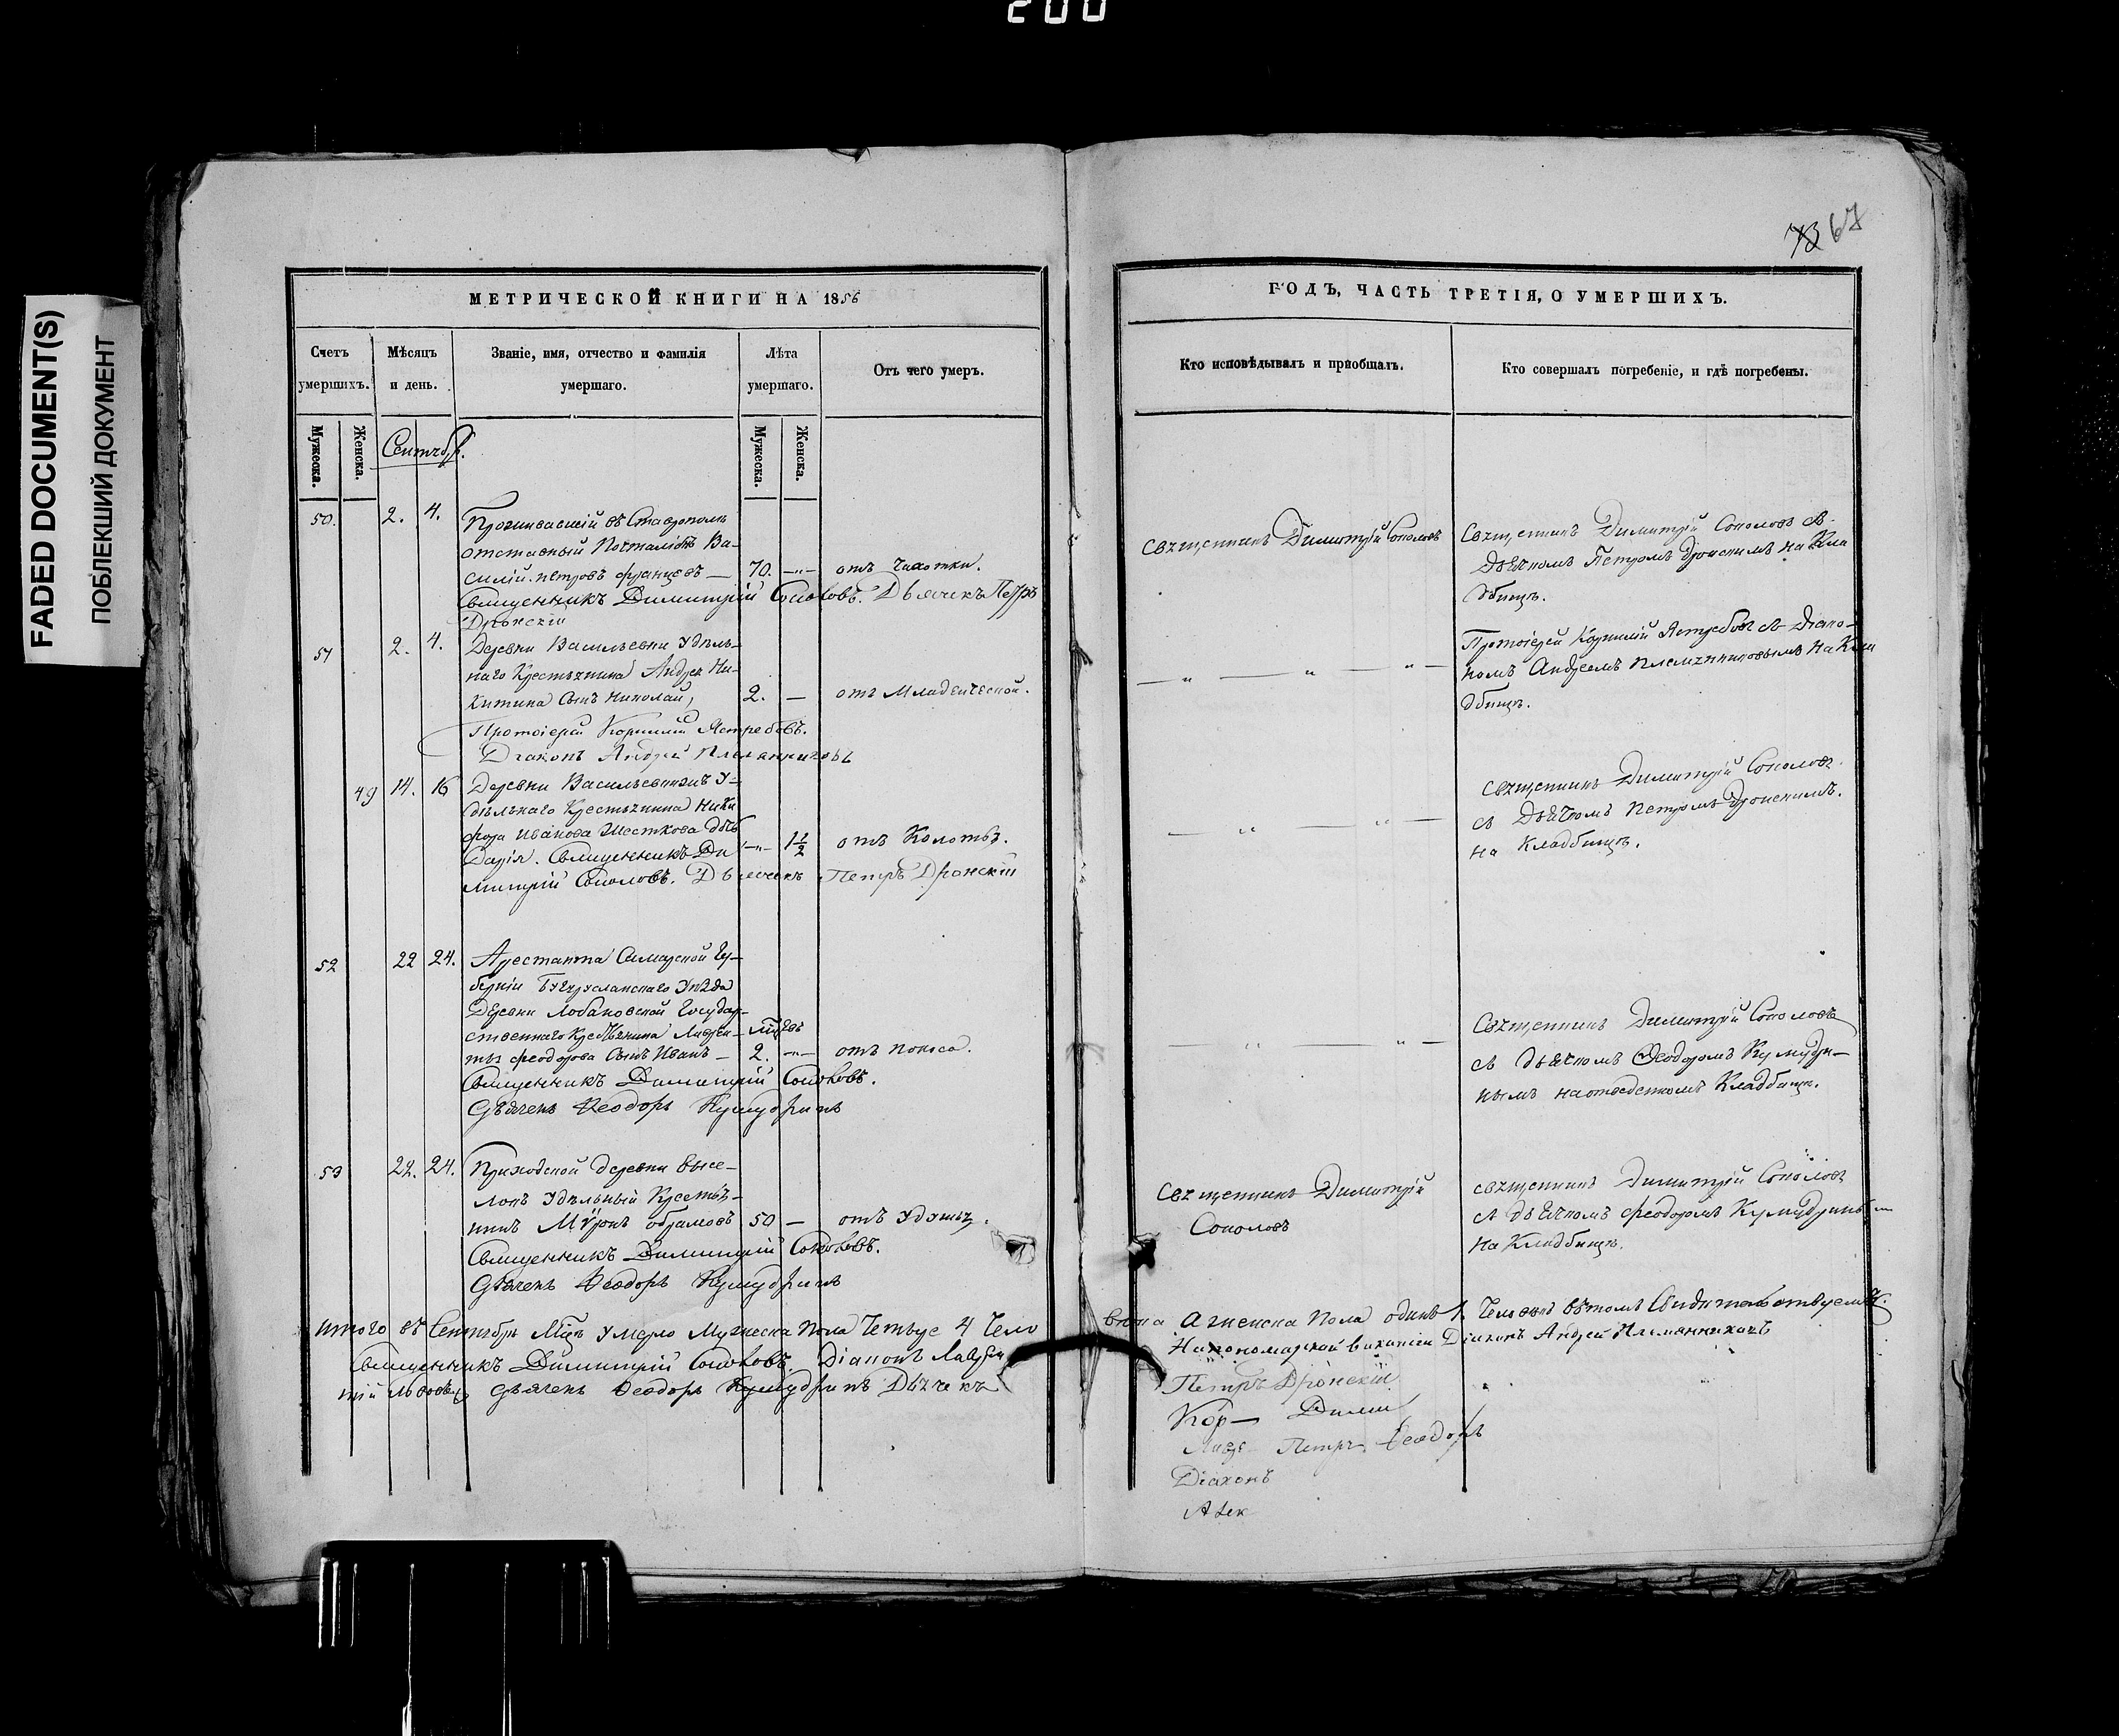 200
FADED DOCUMENT(S)
ПОБЛЕКШИЙ ДОКУМЕНТ
73 67
МЕТРИЧЕСКОЙ КНИГИ НА 1856
Счетъ умершихъ.
Мѣсяцъ и день.
Званіе, имя, отчество и фамилія умершаго.
Лѣта умершаго.
Отъ чего умеръ.
Мужеска.
Женска.
Мужеска.
Женска.
Сентябр.
50. 2. 4. Проживавшій въ Ставрополѣ
отставный Почталіонъ Ва-
силій Петровъ Францевъ — 70. —„— отъ Чахотки.
Священникъ Димитрій Соколовъ. Дьячекъ Петръ
Дронскій
51 2. 4. Деревни Васильевки Удѣль-
наго Крестьянина Андрея Ни-
китина Сынъ Николай, 2. — отъ Младенческой.
Протоіерей Корнилій Ястребовъ.
Діаконъ Андрей Племянниковъ
49 14. 16 Деревни Васильевки У-
дѣльнаго Крестьянина Ники
фора Иванова Шесткова дочь
Дарія. Священникъ Ди —„— 1 1/2 отъ Колотья.
митрій Соколовъ. Дьячекъ Петръ Дронскій
52 22 24. Арестанта Самарской Гу-
берніи Бугурусланскаго Уѣзда
Деревни Лобановской Государ-
ственнаго Крестьянина Лаврен-
тія Феодорова Сынъ Иванъ — 2. —„— отъ Поноса.
Священникъ Димитрій Соколовъ.
Дьячекъ Феодоръ Кумудринъ
53 22. 24. Приходской деревни Высе-
локъ Удѣльный Крестья-
нинъ Мѵронъ Абрамовъ 50 — отъ Удушья.
Священникъ Димитрій Соколовъ.
Дьячекъ Феодоръ Кумудринъ
Итого въ Сентябрѣ Мцѣ умерло Мужеска Пола Четыре 4 Чело
Священникъ Димитрій Соколовъ. Діаконъ Лаврен
тій Дьячекъ Феодоръ Кумудринъ Дьячекъ
ГОДЪ, ЧАСТЬ ТРЕТІЯ, О УМЕРШИХЪ.
Кто исповѣдывалъ и пріобщалъ.
Кто совершалъ погребеніе, и гдѣ погребены.
Священникъ Димитрій Соколовъ
Священникъ Димитрій Соколовъ съ
Дьячкомъ Петромъ Дронскимъ на Кла
дбищѣ.
— „ — „ — „ —
Протоіерей Корнилій Ястребовъ съ Діако-
номъ Андреемъ Племянниковымъ на Кла
дбищѣ.
— „ — „ —
Священникъ Димитрій Соколовъ
съ Дьячкомъ Петромъ Дронскимъ.
на Кладбищѣ.
— „ — „ —
Священникъ Димитрій Соколовъ
съ дьячкомъ Феодоромъ Кумудри-
нымъ на отведенномъ Кладбищѣ.
Священникъ Димитрій
Соколовъ
священникъ Димитрій Соколовъ
съ дьячкомъ Феодоромъ Кумудринымъ
на Кладбищѣ.
вѣка а женска Пола одинъ 1 Человѣкъ въ томъ Свидѣтельствуемъ.
На пономарской вакансіи Діаконъ Андрей Племянниковъ
Петръ Дронскій
Кор— Дими
Петръ Феодоръ
Діаконъ